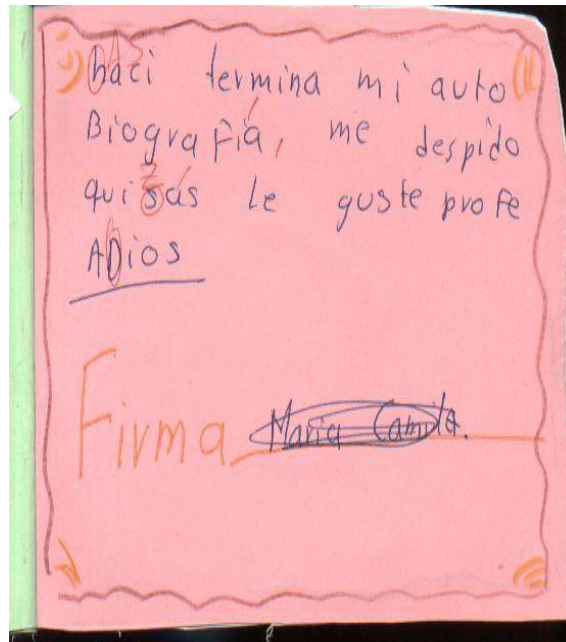 haci termina mi auto
Biografía, me despido
quisás le guste profe
ADios
Firma Maria Camila.